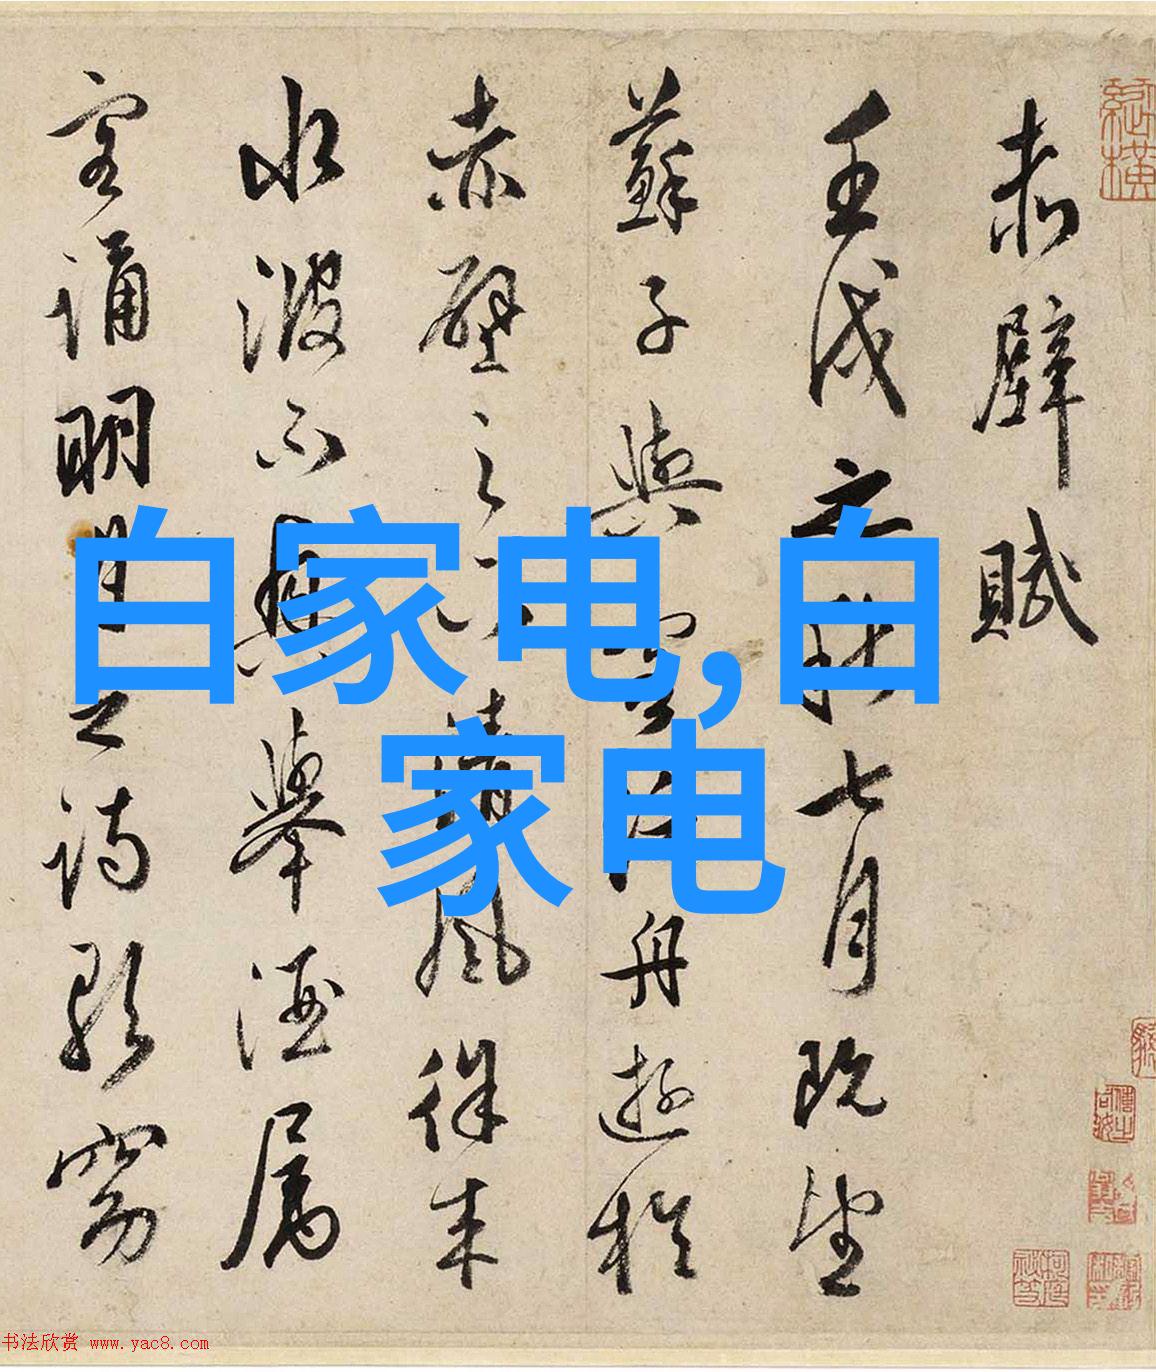 赤壁賦
壬戌之秋七月既望
蘇子與客泛舟遊於
赤壁之下清風徐来
水波不興舉酒属
客誦明月之詩歌窈
白家电,白
家电
书法欣赏 www.yac8.com